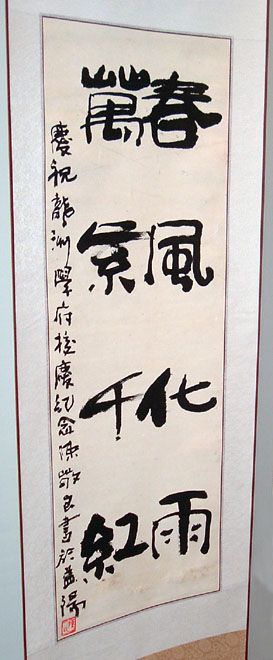 春風化雨
萬紫千紅
慶祝龍洲學府校慶紀念陳敬書於益陽